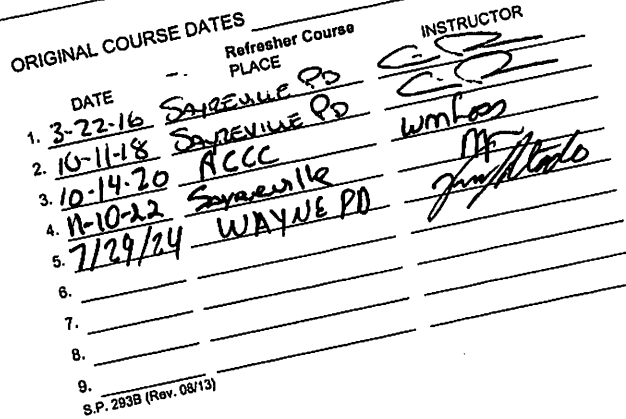 ORIGINAL COURSE DATES
Refresher Course
DATE PLACE INSTRUCTOR
1. 3-22-16 SAYREVILLE PD
2. 10-11-18 SAYREVILLE PD
3. 10-14-20 ACCC
4. 11-10-22 Sayreville
5. 7/29/24 WAYNE PD
6.
7.
8.
9.
S.P. 293B (Rev. 08/13)